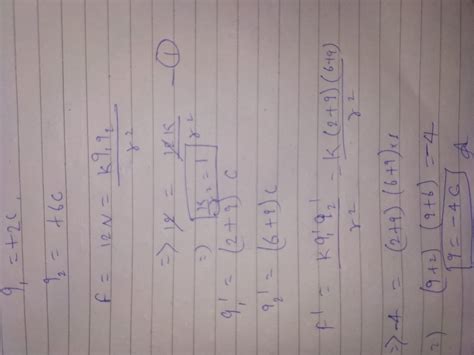 q₁ = +2C,
q₂ = +6C
F = 12N = Kq₁q₂/r²
⇒ 12 = 12K/r² —①
⇒ K/r² = 1
q₁' = (2+q) C
q₂' = (6+q) C
F' = Kq₁'q₂'/r² = K(2+q)(6+q)/r²
⇒ -4 = (2+q)(6+q)×1
⇒ (q+2)(q+6) = -4
q = -4C